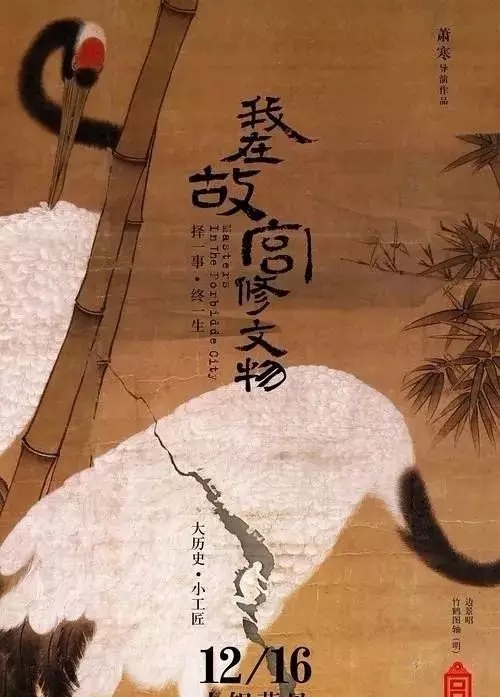 萧寒导演作品
我在故宫修文物
Masters
In The Forbidde City
择一事·终一生
大历史·小工匠
边景昭
竹鹤图轴（明）
12/16